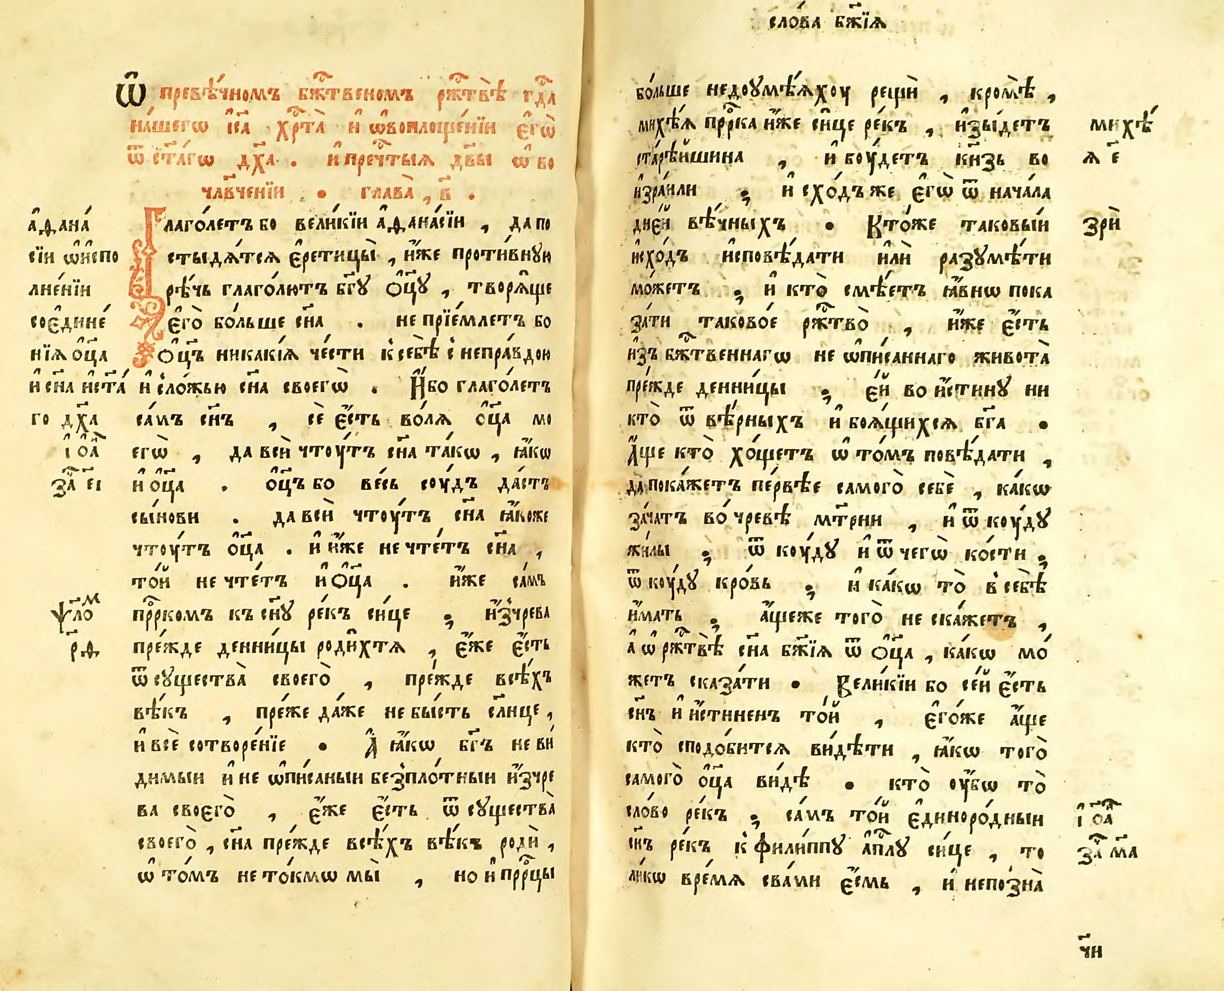 Ѿ превѣ́чномъ бж҃твеномъ рж҃твѣ̀ гд҃а
на́шегѡ і҆с҃а хр҃та̀ и҆ ѡ҆воплоще́нїи є҆гѡ̀
ѿ ст҃а́гѡ дх҃а . и҆ пречⷭ҇тыѧ дв҃ы ѡ҆ во
чл҃вче́нїи • глава̀ , в҃ .
Глаго́летъ бо вели́кїи а҆ѳана́сїи , да по
стыдѧ́тсѧ є҆ретицы̀ , и҆́же проти́вную
рѣ́чь глаго́лютъ бг҃у ѻ҆ц҃у , творѧ́ще
є҆го̀ бо́льше сн҃а . не прїе́млетъ бо
ѻ҆ц҃ъ никакі́ѧ че́сти к себѣ̀ с непра́вдою
и҆ с ло́жью сн҃а своегѡ̀ . И҆́бо глаго́летъ
са́мъ сн҃ъ , сѐ є҆́сть во́лѧ ѻ҆ц҃а мо
егѡ̀ , да всѝ чтоу́тъ сн҃а та́кѡ , ꙗ҆́кѡ
и҆ ѻ҆ц҃а . ѻ҆ц҃ъ бо весь соу́дъ да́стъ
сы́нови . да всѝ чтоу́тъ сн҃а ꙗ҆́коже
чтоу́тъ ѻ҆ц҃а . и҆ и҆́же не чте́тъ сн҃а ,
то́й не чте́тъ и҆ ѻ҆ц҃а . и҆́же са́мъ
прⷪ҇ркомъ къ сн҃у ре́къ си́це ; и҆зчре́ва
пре́жде денни́цы роди́хтѧ , є҆́же є҆́сть
ѿ существа̀ своего̀ , пре́жде всѣ́хъ
вѣ́къ , пре́же да́же не бы́сть сл҃нце ,
и҆ всѐ сотворе́нїе • А҆ ꙗ҆́кѡ бг҃ъ не ви́
димыи и҆ не ѡ҆пи́саныи безпло́тныи и҆зчре
ва своего̀ , є҆́же є҆́сть ѿ существа̀
своего̀ , сн҃а пре́жде всѣ́хъ вѣ́къ родѝ ,
ѡ҆ то́мъ не то́кмѡ мы̀ , но и҆ прⷪ҇рцы
а҆ѳана́
сїи ѡ҆ и҆спо
лне́нїи
соє҆дине́
нїѧ ѻ҆ц҃а
и҆ сн҃а и҆ ст҃а́
го дх҃а
і҆оа҃
за҃ еі
ѱало́м
рѳ҃
сло́ва бж҃їѧ
бо́льше недоумѣ́ѧхоу рещѝ , кромѣ̀ ,
михѣ́ѧ прⷪ҇рка и҆́же си́це ре́къ , и҆зы́детъ
старѣ́йшина , и҆ боу́детъ кнѧ́зь во
и҆зра́или ; и҆ схо́дъ же є҆гѡ̀ ѿ нача́ла
дне́й вѣ́чныхъ • Кто́же таковы́й
и҆схо́дъ и҆сповѣ́дати и҆лѝ разумѣ́ти
мо́жетъ ; и҆ кто̀ смѣ́етъ ꙗ҆́внѡ пока
за́ти таково́е рж҃тво̀ , и҆́же є҆́сть
и҆зъ бж҃твеннагѡ не ѡ҆пи́саннаго живота̀
пре́жде денни́цы ; є҆́й во и҆́стину ни
кто̀ ѿ вѣ́рныхъ и҆ боѧ́щихсѧ бг҃а •
А҆́ще кто̀ хо́щетъ ѡ҆ то́мъ повѣ́дати ,
да пока́жетъ пе́рвѣе самого̀ себѐ , ка́кѡ
зача́тъ во чре́вѣ мт҃рни , и҆ ѿ коу́ду
жи́лы ; ѿ коу́ду и҆ ѿ чегѡ̀ ко́сти ;
ѿ коу́ду кро́вь ; и҆ ка́кѡ то̀ в себѣ̀
и҆́мать ; а҆́щеже того̀ не ска́жетъ ,
а҆ ѡ҆ рж҃твѣ̀ сн҃а бж҃їѧ ѿ ѻ҆ц҃а , ка́кѡ мо́
жетъ сказа́ти • Вели́кїи бо се́й є҆́сть
сн҃ъ и҆ и҆́стиненъ то́й , є҆го́же а҆́ще
кто̀ сподо́битсѧ ви́дѣти , ꙗ҆́кѡ того̀
самого̀ ѻ҆ц҃а ви́дѣ • кто̀ оу҆́бѡ то̀
сло́во ре́къ ; са́мъ то́й є҆диноро́дныи
сн҃ъ ре́къ к фили́ппу а҆пⷭ҇лу си́це , то
ли́кѡ вре́мѧ сва́ми є҆́смь , и҆ непозна̀
михѣ́
ѧ е҃
зрѝ
і҆оа҃
за҃ ма
чи҃